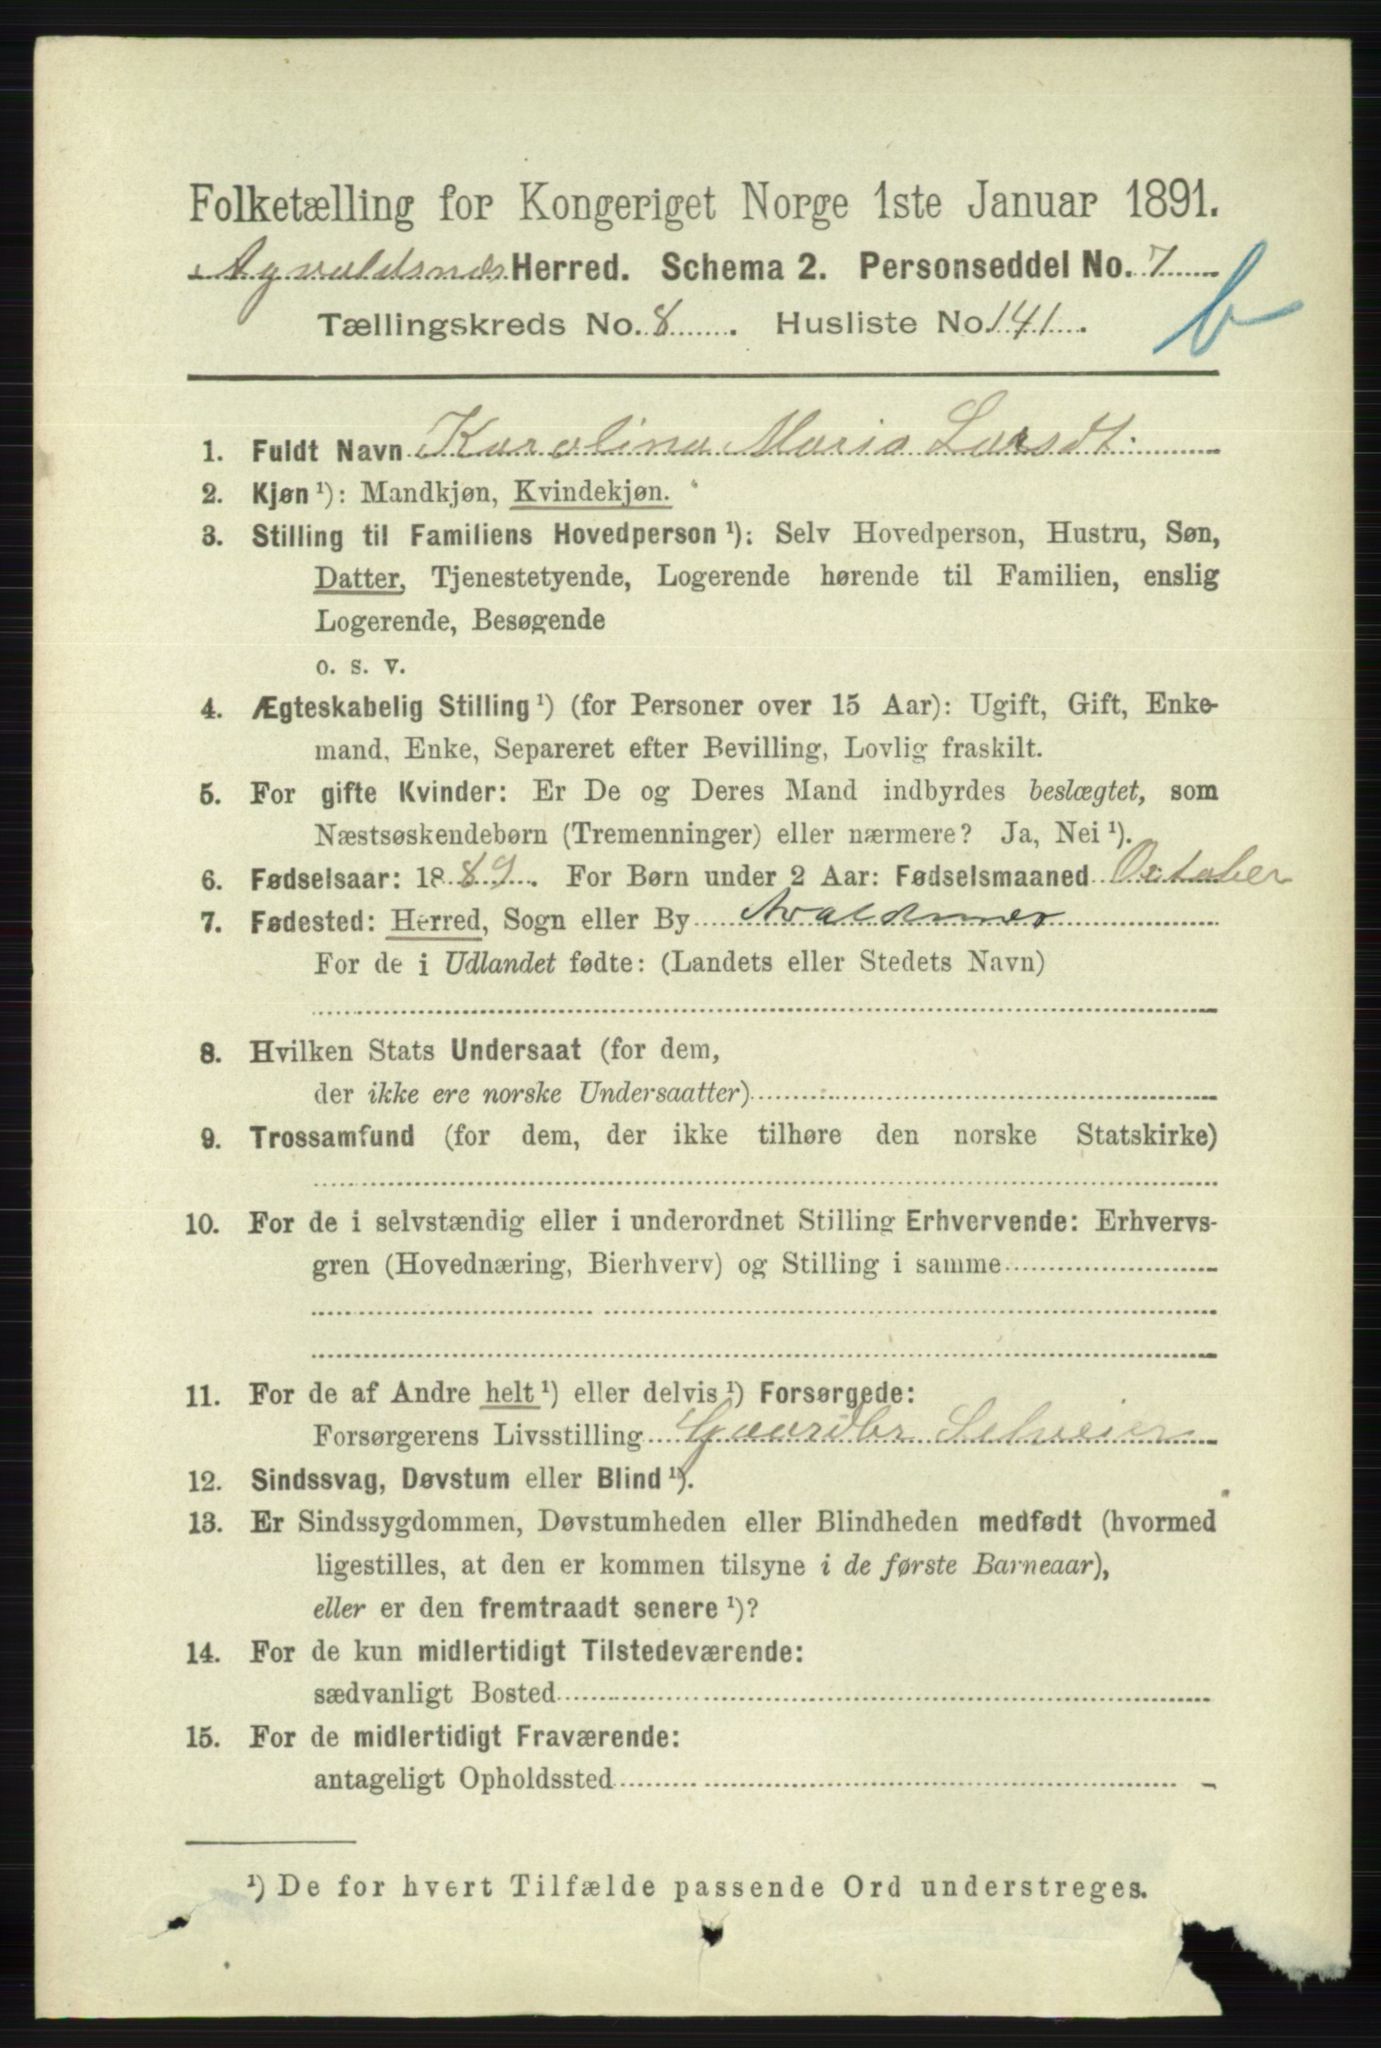 Folketælling for Kongeriget Norge 1ste Januar 1891.
Agvaldsnæs Herred. Schema 2. Personseddel No. 7
Tællingskreds No. 8. Husliste No. 141.
b
1. Fuldt Navn Karolina Maria Larsdt.
2. Kjøn ¹): Mandkjøn, Kvindekjøn.
3. Stilling til Familiens Hovedperson ¹): Selv Hovedperson, Hustru, Søn,
Datter, Tjenestetyende, Logerende hørende til Familien, enslig
Logerende, Besøgende
o. s. v.
4. Ægteskabelig Stilling ¹) (for Personer over 15 Aar): Ugift, Gift, Enke-
mand, Enke, Separeret efter Bevilling, Lovlig fraskilt.
5. For gifte Kvinder: Er De og Deres Mand indbyrdes beslægtet, som
Næstsøskendebørn (Tremenninger) eller nærmere? Ja, Nei ¹).
6. Fødselsaar: 1889. For Børn under 2 Aar: Fødselsmaaned October
7. Fødested: Herred, Sogn eller By Avaldsnes
For de i Udlandet fødte: (Landets eller Stedets Navn)
8. Hvilken Stats Undersaat (for dem,
der ikke ere norske Undersaatter)
9. Trossamfund (for dem, der ikke tilhøre den norske Statskirke)
10. For de i selvstændig eller i underordnet Stilling Erhvervende: Erhvervs-
gren (Hovednæring, Bierhverv) og Stilling i samme
11. For de af Andre helt ¹) eller delvis ¹) Forsørgede:
Forsørgerens Livsstilling Gaardbr Selveier
12. Sindssvag, Døvstum eller Blind ¹).
13. Er Sindssygdommen, Døvstumheden eller Blindheden medfødt (hvormed
ligestilles, at den er kommen tilsyne i de første Barneaar),
eller er den fremtraadt senere ¹)?
14. For de kun midlertidigt Tilstedeværende:
sædvanligt Bosted
15. For de midlertidigt Fraværende:
antageligt Opholdssted
¹) De for hvert Tilfælde passende Ord understreges.